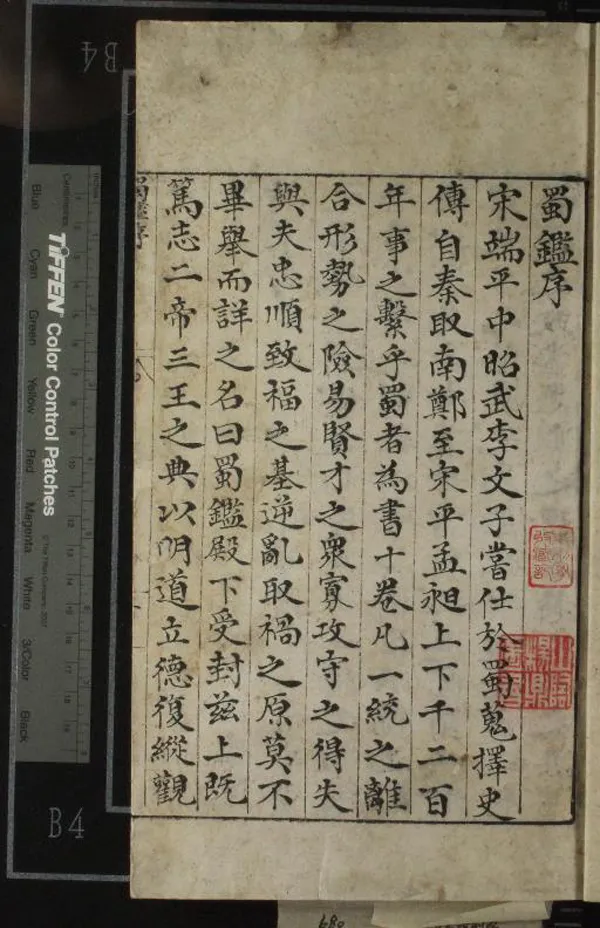 蜀鑑序
宋端平中昭武李文子嘗仕於蜀蒐擇史
傳自秦取南鄭至宋平孟昶上下千二百
年事之繫乎蜀者為書十卷凡一統之離
合形勢之險易賢才之衆寡攻守之得失
與夫忠順致福之基逆亂取禍之原莫不
畢舉而詳之名曰蜀鑑殿下受封兹上既
篤志二帝三王之典以明道立德復縱觀
蜀鑑序
B4
B4
TIFFEN Color Control Patches
© The Tiffen Company, 2007
Centimetres
Blue
Cyan
Green
Yellow
Red
Magenta
White
3/Color
Black
680